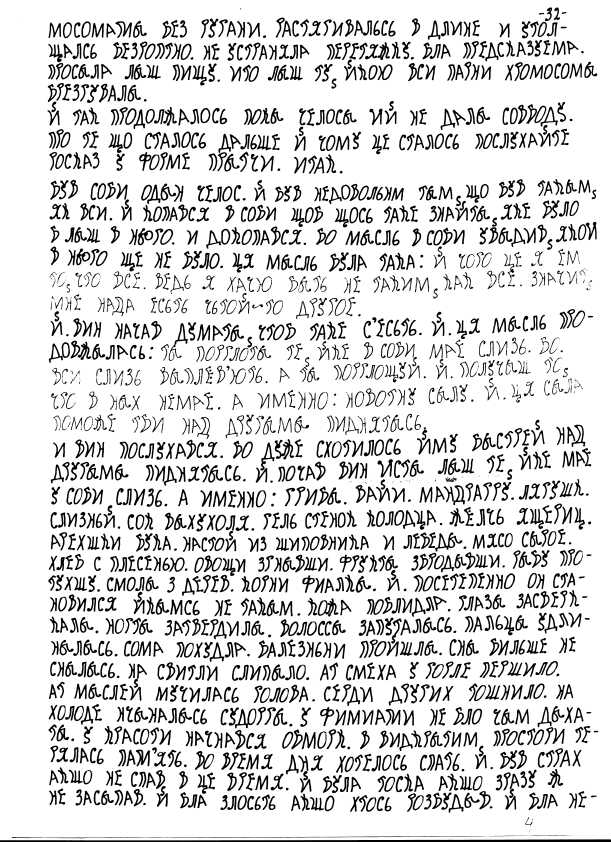 -32-
МОСОМАТИВ БЕЗ РУГАНИ. РАСТЯГИВАЛСЬ В ДЛИНЕ И УТОЛ-
ЩАЛСЬ БЕЗРОПТНО. НЕ УСТРАНЯЛА ПЕРЕТЯЖКУ. БЛА ПРЕДСКАЗУЕМА.
ПРОСАЛА ЛЫШ ПИЩУ. ИТО ЛЫШ ТУ, ЙКОЮ ВСИ ПАРНИ ХРОМОСОМЫ
БРЕЗГУВАЛЫ.
Й ТАК ПРОДОЛЖАЛОСЬ ПОКЫ ЧЕЛОСЫ ИЙ НЕ ДАЛЫ СОВВОДУ.
ПРО ТЕ ЩО СТАЛОСЬ ДАЛЬШЕ Й ЧОМУ ЦЕ СТАЛОСЬ ПОСЛУХАЙТЕ
РОСКАЗ У ФОРМЕ ПРЫТЧИ. ИТАК.
БУВ СОБИ ОДЫН ЧЕЛОС. Й БУВ НЕДОВОЛЬНМ ТЫМ, ЩО БУВ ТАКЫМ,
ЯК ВСИ. Й КОПАВСЯ В СОБИ ЩОБ ЩОСЬ ТАКЕ ЗНАЙТЫ, ЯКЕ БУЛО
В ЛЫШ В НЬОГО. И ДОКОПАВСЯ. БО МЫСЛЬ В СОБИ УВЫДИВ, ЯКОЙ
В НЬОГО ЩЕ НЕ БУЛО. ЦЯ МЫСЛЬ БУЛА ТАКА: Й ЧОГО ЦЕ Я ЕМ
ТО, ЧТО ВСЕ. ВЕДЬ Я ХАЧЮ БЫТЬ НЕ ТАКИМ, КАК ВСЕ. ЗНАЧИТ,
МНЕ НАДА ЕСЬТЬ ЧЬТОЙ-ТО ДРУГОЕ.
Й. ВИН НАЧАВ ДУМАТЫ, ЧТОБ ТАКЕ С'ЕСЬТЬ. Й. ЦЯ МЫСЛЬ ПРО-
ДОВЖАЛАСЬ: ТЫ ПОГЛОТЫ ТЕ, ЙКЕ В СОБИ МАЕ СЛИЗЬ. БО.
ВСИ СЛИЗЬ ВЫПЛЕВ'ЮТЬ. А ТЫ ПОГЛОЩУЙ. Й. ПОЛУЧЫШ ТО,
ЧТО В НЫХ НЕМАЕ. А ИМЕННО: НОВОТНУ СЫЛУ. Й. ЦЯ СЫЛА
ПОМОЖЕ ТБИ НАД ДРУГЫМЫ ПИДНЯТЫСЬ.
И ВИН ПОСЛУХАВСЯ. БО ДУЖЕ СХОТИЛОСЬ ЙМУ БЫСТРЕЙ НАД
ДРУГЫМЫ ПИДНЯТЫСЬ. Й. ПОЧАВ ВИН ИСТЫ ЛЫШ ТЕ, ЙКЕ МАЕ
У СОБИ, СЛИЗЬ. А ИМЕННО: ГРИБЫ. ВАЙИ. МАНДРАГРУ. ЛЯГУШК.
СЛИЗНЬЙ. СОК ВЫХУХОЛЯ. ГЕЛЬ СТЕНОК КОЛОДЦА. ЖЕЛЧЬ ЯЩЕРИЦ.
АРЕХШКИ БУКА. НАСТОЙ ИЗ ШИПОВНИКА И ЛЕБЕДЫ. МЯСО СЫРОЕ.
ХЛЕБ С ПЛЕСЕНЬЮ. ОВОЩИ ЗГНЫВШИ. ФРУКТЫ ЗБРОДЫВШИ. РЫБУ ПРО-
ТУХШУ. СМОЛА З ДЕРЕВ. КОРНИ ФИАЛКЫ. Й. ПОСЕТЕПЕННО ОН СТА-
НОВИЛСЯ ЙКЫМСЬ НЕ ТАКЫМ. КОЖА ПОБЛИДЛА. ГЛАЗА ЗАСВЕРК-
КАЛЫ. НОГТЫ ЗАТВЕРДИЛЫ. ВОЛОССЫ ЗАПУТАЛЫСЬ. ПАЛЬЦЫ УДЛИ-
НЫЛЫСЬ. СОМА ПОХУДЛА. БАЛЕЗНЬНИ ПРОЙШЛЫ. СНА БИЛЬШЕ НЕ
СНЫЛЫСЬ. НА СВИТЛИ СЛИПАЛО. АТ СМЕХА У ГОРЛЕ ПЕРШИЛО.
АТ МЫСЛЕЙ МУЧИЛАСЬ ГОЛОВА. СЕРДИ ДРУГИХ ТОШНИЛО. НА
ХОЛОДЕ НЧЫНАЛАСЬ СУДОРГА. У ФИМИАМИ НЕ БЛО ЧЫМ ДЫХА-
ТЫ. У КРАСОТИ НАЧНАВСЯ ОБМОРК. В ВИДКРЫТИМ, ПРОСТОРИ ТЕ-
РЯЛАСЬ ПАМ'ЯТЬ. ВО ВРЕМЯ ДНЯ ХОТЕЛОСЬ СПАТЬ. Й. БУВ СТРАХ
АКШО НЕ СПАВ В ЦЕ ВРЕМЯ. Й БУЛА ТОСКА АКШО ЗРАЗУ Ж
НЕ ЗАСЫПАВ. Й БЛА ЗЛОСЬТЬ АКШО ХТОСЬ РОЗБУДЫВ. Й БЛА НЕ-
4